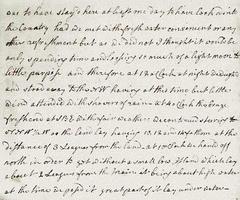 was to have stay'd here at least one day to have look'd into
the Country had we met with fresh water convenient or any
other refreshment but as we did not I thought it would be
only spending time and loosing so much of a light moon to
little purpose and therefore at 12 oClock at night we weigh'd
and stood away to the NW having at this time but little
wind attended with Showers of rain at 4 oClock the breeze
freshend at SBE with fair weather we continued steering
NNW½W as the land lay having 10, 12 and 14 fathom at the
distance of 3 Leagues from the land at 10 oClock we hauld off
north in order to get without a small low Island which lay
about 2 Leagues from the main it being about high water
at the time we pass'd it great part of it lay under water